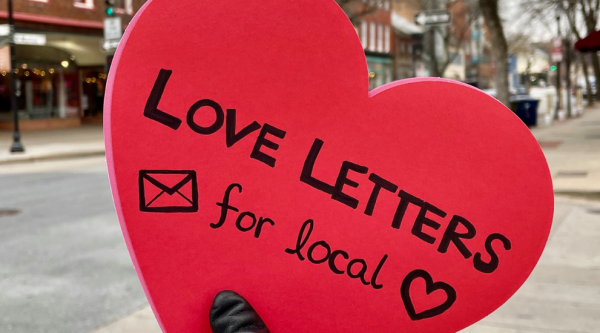 LOVE LETTERS
for local